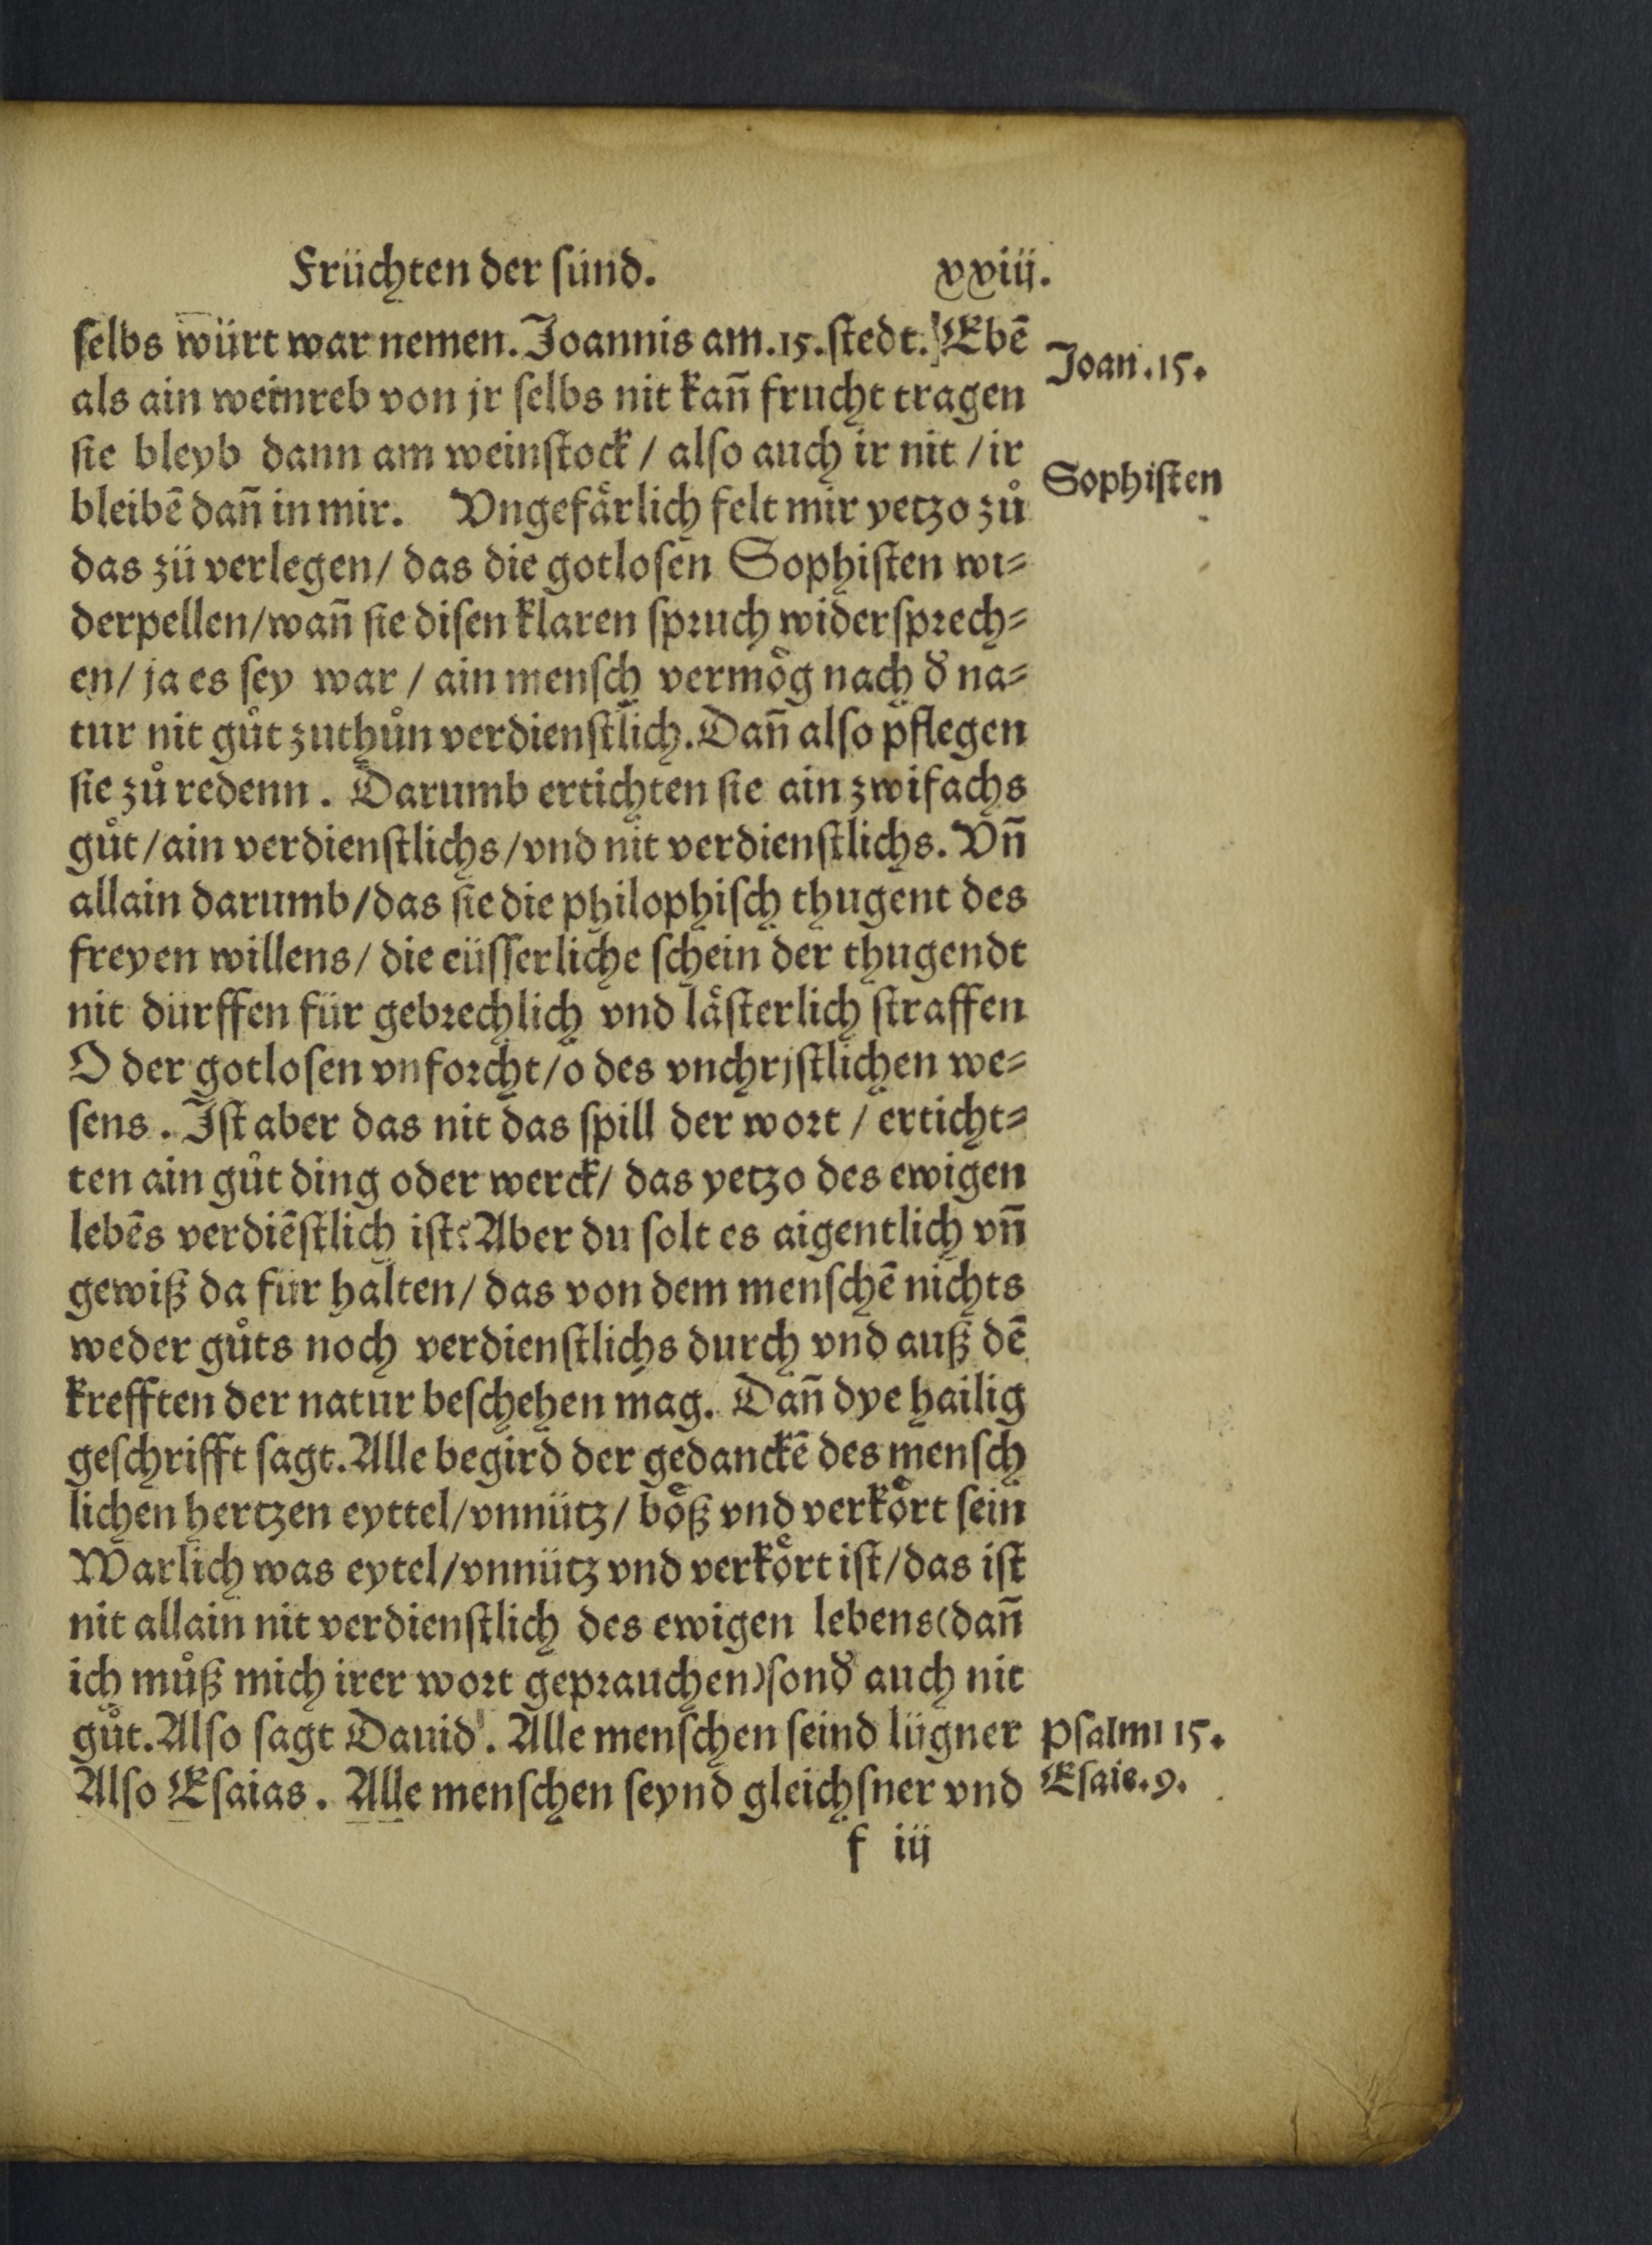 Früchten der ſünd. xxiij.
ſelbs würt war nemen. Joannis am.15.ſtedt. Ebē
Joan.15.
als ain weinreb von jr ſelbs nit kan̄ frucht tragen
ſie bleyb dann am weinſtock / alſo auch ir nit / ir
Sophiſten
bleibē dan̄ in mir. Vngefaͤrlich felt mir yetzo zuͦ
das zü verlegen/ das die gotloſen Sophiſten wi⸗
derpellen/wan̄ ſie diſen klaren ſpꝛuch widerſpꝛech⸗
en/ ja es ſey war / ain menſch vermoͤg nach d̕ na⸗
tur nit guͦt zuthuͦn verdienſtlich. Dan̄ alſo pflegen
ſie zuͦ redenn. Darumb ertichten ſie ain zwifachs
guͦt/ain verdienſtlichs/vnd nit verdienſtlichs. Vn̄
allain darumb/das ſie die philophiſch thugent des
freyen willens/ die eüſſerliche ſchein der thugendt
nit dürffen für gebꝛechlich vnd laͤſterlich ſtraffen
O der gotloſen vnfoꝛcht/o des vnchrjſtlichen we⸗
ſens. Iſt aber das nit das ſpill der woꝛt / erticht⸗
ten ain guͦt ding oder werck/ das yetzo des ewigen
lebēs verdiēſtlich iſt? Aber du ſolt es aigentlich vn̄
gewiß da für halten/ das von dem menſchē nichts
weder guͦts noch verdienſtlichs durch vnd auß dē
krefften der natur beſchehen mag. Dan̄ dye hailig
geſchrifft ſagt. Alle begird der gedanckē des menſch
lichen hertzen eyttel/vnnütz/ boͤß vnd verkoͤrt ſein
Warlich was eytel/vnnütz vnd verkoͤrt iſt/das iſt
nit allain nit verdienſtlich des ewigen lebens(dan̄
ich muͦß mich irer woꝛt gepꝛauchen)ſond̕ auch nit
guͦt. Alſo ſagt Dauid. Alle menſchen ſeind lügner
Pſalmi 15.
Alſo Eſaias. Alle menſchen ſeynd gleichſner vnd
Eſaie.9.
f iij